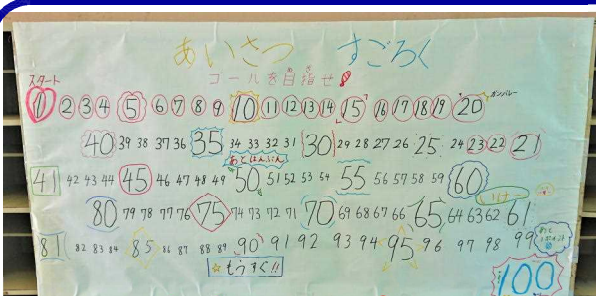 あいさつ すごろく
ゴールを目指せ!
スタート
1 2 3 4 5 6 7 8 9 10 11 12 13 14 15 16 17 18 19 20 ガンバレー
40 39 38 37 36 35 34 33 32 31 30 29 28 27 26 25 24 23 22 21
あとはんぶん
41 42 43 44 45 46 47 48 49 50 51 52 53 54 55 56 57 58 59 60
80 79 78 77 76 75 74 73 72 71 70 69 68 67 66 65 64 63 62 61
81 82 83 84 85 86 87 88 89 90 91 92 93 94 95 96 97 98 99
☆もうすぐ!!
100